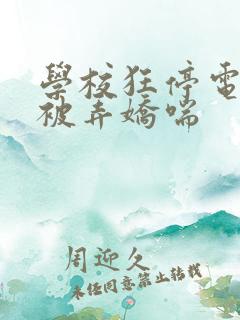 學校狂停電
被弄嬌喘
周迎久
未经同意禁止转载